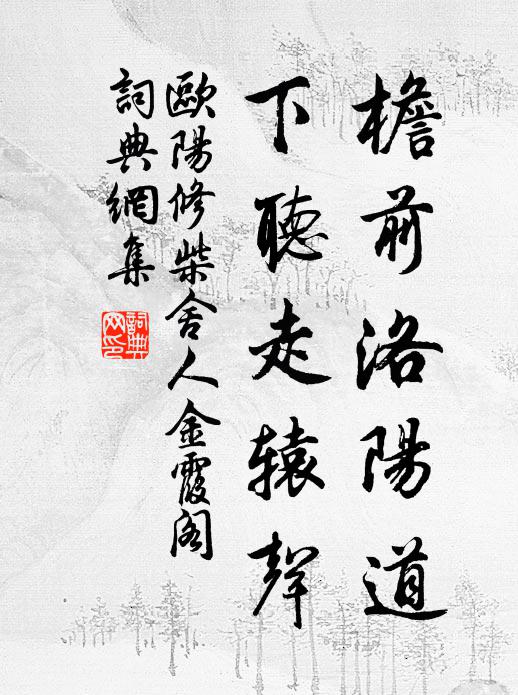 檐前洛陽道
下聽走辕聲
歐陽修柴舍人金霞阁
詞典網集
詞典
网印